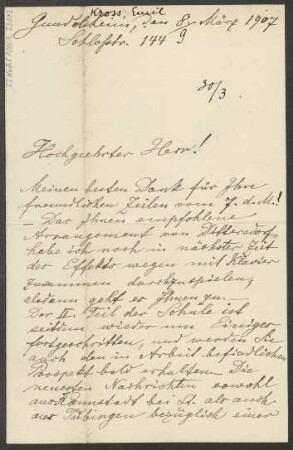 Kross, Emil
Gundelsheim, den 8. März 1907
Schloßstr. 144 9
30/3
Hochgeehrter Herr!
Meinen besten Dank für Ihre
freundlichen Zeilen vom 7. d. M.!
– Das Ihnen empfohlene
Arrangement von Dittersdorf
habe ich noch in nächster Zeit
der Effekte wegen mit Klavier
zusammen durchzuspielen,
alsdann geht es Ihnen zu.
Der II. Teil der Schule ist
seitdem wieder um Einiges
fortgeschritten, und werden Sie
auch den in Arbeit befindlichen
Prospekt bald erhalten. Die
neuesten Nachrichten sowohl
aus Cannstadt bei St. als auch
aus Tübingen bezüglich einer